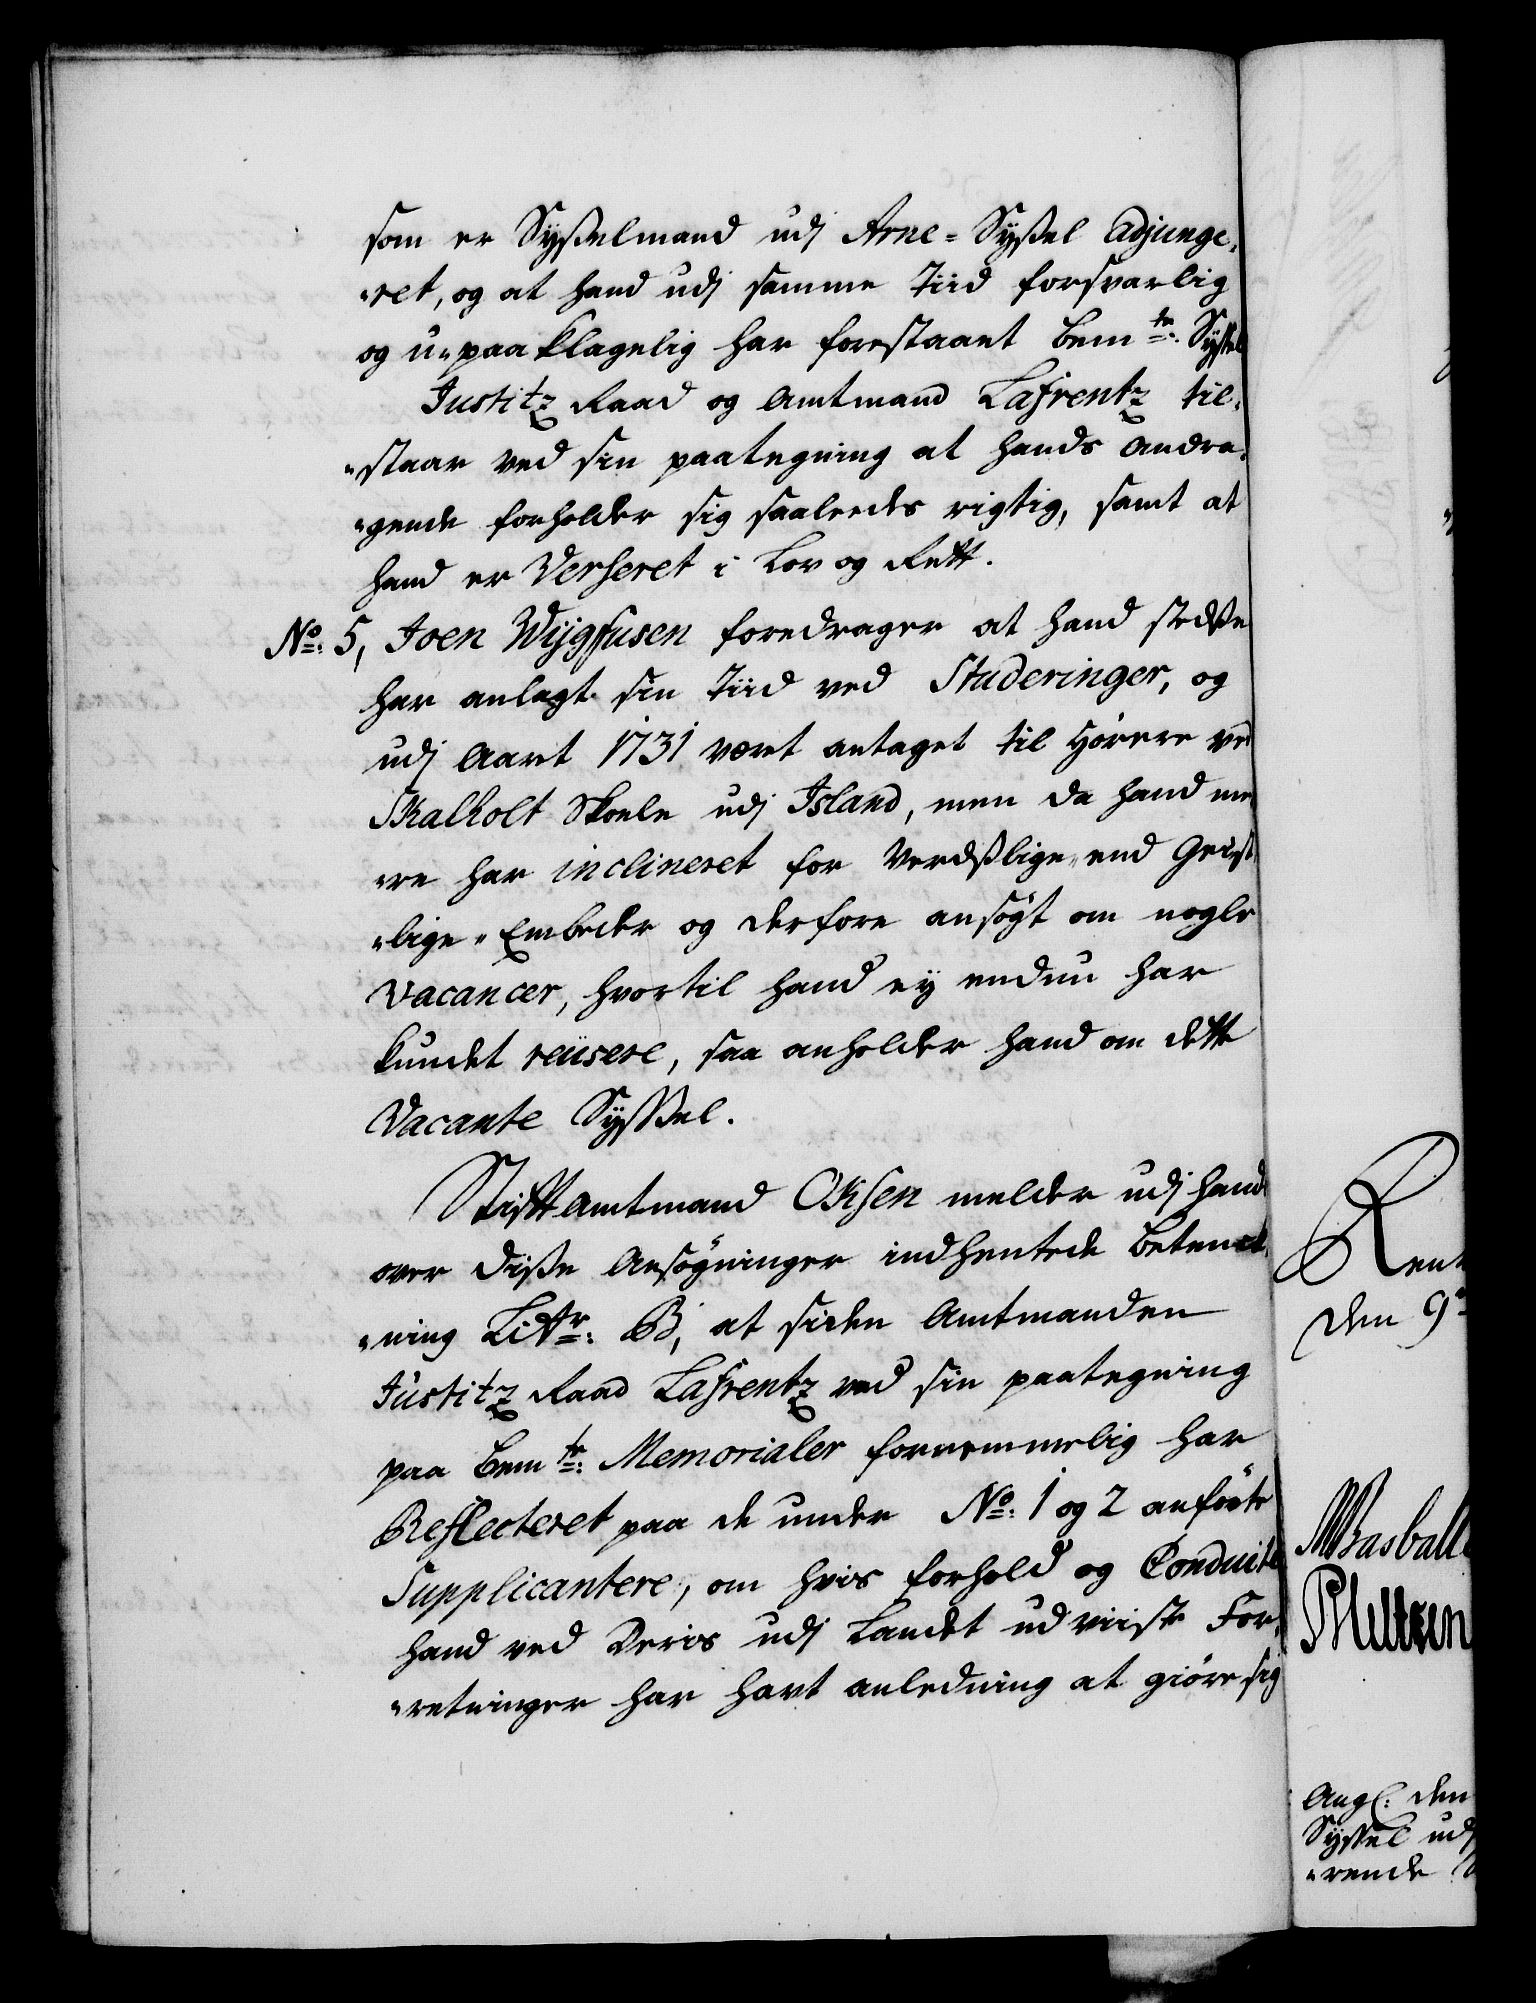 som er Sysselmand udj Arne-Syssel Adjunge-
-ret, og at hand udj samme Tiid forsvarlig
og u-paaklagelig har forestaaet bemte: Syssel
Justitz Raad og Amtmand Lafrentz til-
-staar ved sin paategning at hands Andra-
-gende forholder sig saaledes rigtig, samt at
hand er Verseret i Lov og Rett.
No: 5, Joen Wijgfusen foredrager at hand stedsse
har anlagt sin Tiid ved Studeringer, og
udj Aaret 1731 været antaget til Hörere ved
Skalholt Skoele udj Island, men da hand mee
-re har inclineret for Verdslige- end Geist
-lige- Embeder og derfore ansögt om nogle
Vacancer, hvortil hand ey endnu har
kundet reüsere, saa anholder hand om dette
Vacante Syssel.
Stiftamtmand Oksen melder udj hands
over disse Ansögninger indhentede Betenck-
-ning Littr: B, at siden Amtmanden
Justitz Raad Lafrentz ved sin paategning
paa bemte: Memorialer fornemmelig har
Reflecteret paa de under No: 1 og 2 anförte
Supplicantere, om hvis forhold og Conduite
hand ved Deris udj Landet udviiste For-
-retninger har havt anledning at giöre sig
Rent
den 9
Basball
Angl: den
Syssel udj
-rende